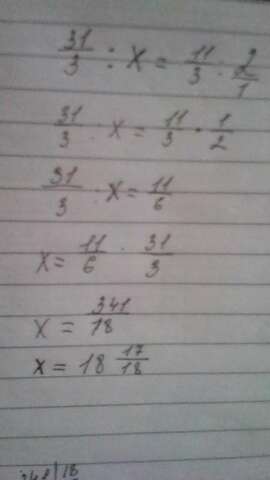 31/3 : x = 11/3 · 2/1
31/3 : x = 11/3 · 1/2
31/3 : x = 11/6
x = 11/6 · 31/3
x = 341/18
x = 18 17/18